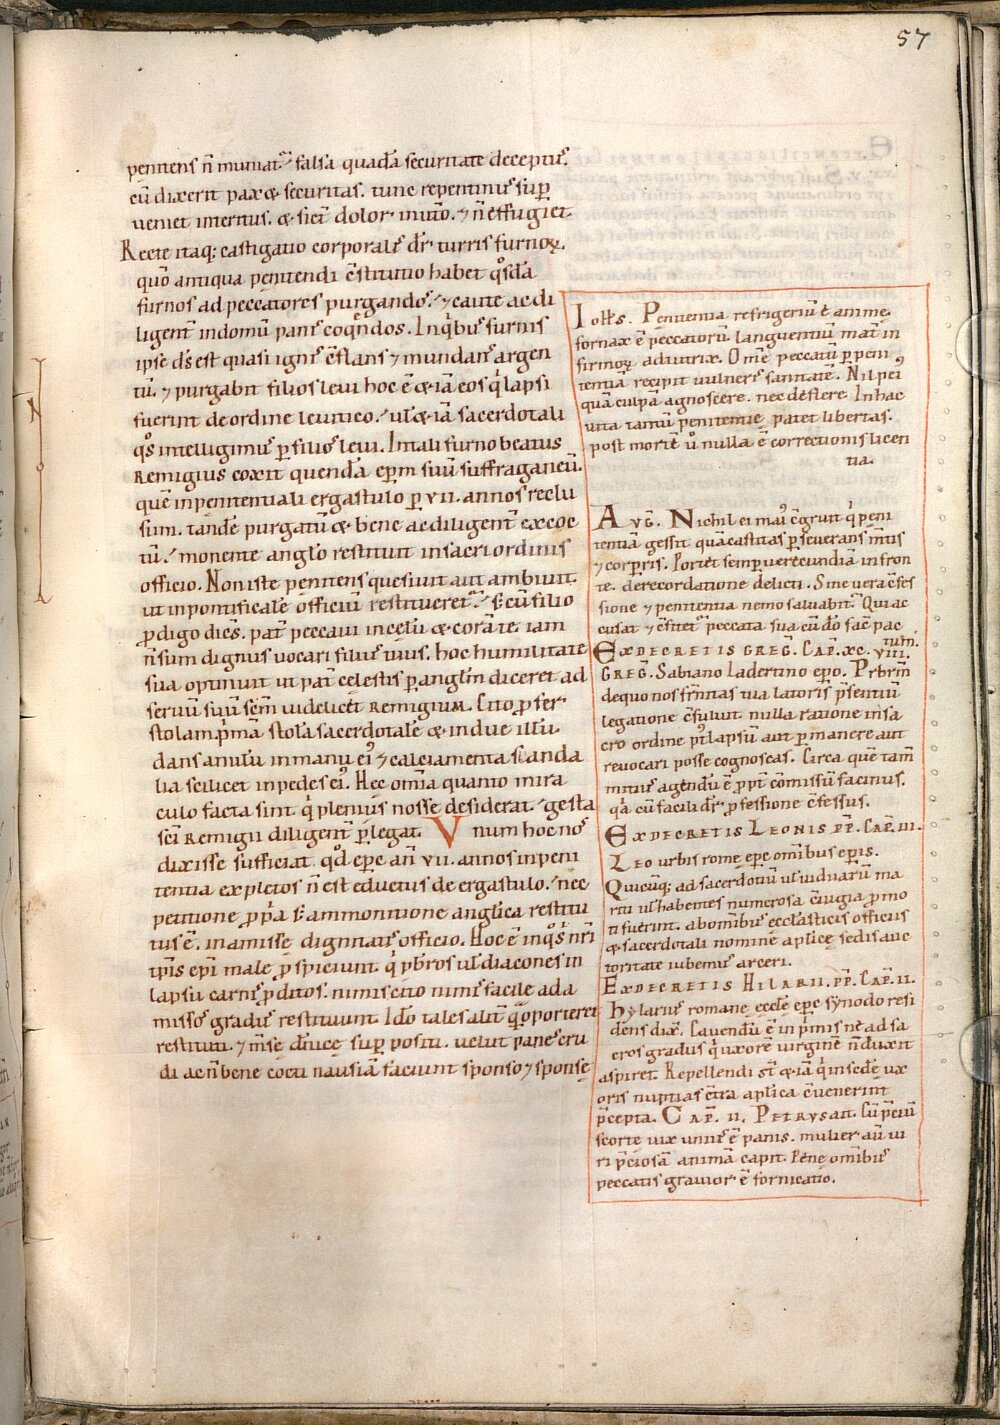 57
penitens n̄ muniat᷑ falsa quadā securitate deceptus.
cū dixerit pax & securitas. tunc repentinus sup̄
veniet interitus. & sic̄ dolor inut̄o. ⁊ n̄ effugiet.
Recte itaq; castigatio corporalis dr̄ turris furnoꝝ.
quō antiqua penitendi c̄stitutio habet qōsdā
furnos ad peccatores purgandos. ⁊ caute ac di
ligent̄ in domū panis coqn̄dos. In qͥbus furnis
ipse ds̄ est quasi ignis c̄flans ⁊ mundans argen
tū. ⁊ purgabit filios leui hoc ē & iā eos qͥ lapsi
fuerint de ordine leuitico. ul̄ & iā sacerdotali
qōs intelligimus ꝑ filios leui. In tali furno beatus
Remigius coxit quendā ep̄m suū suffraganeū.
quē in penitentiali ergastulo ꝑ vii. annos reclu
sum. tandē purgatū & bene ac diligent̄ excoc
tū. monente anglo restituit in sacri ordinis
officio. Non iste penitens quesiuit aut ambiuit.
ut in pontificale officiū restitueret᷑. s; cū filio
ꝓdigo dicēs. pat̄ peccaui in celū & corā te. iam
n̄ sum dignus uocari filius tuus. hoc humilitate
sua optinuit ut pat̄ celestis ꝑ angl̄m diceret ad
seruū suū sc̄m uidelicet Remigium. Cito ꝓfer
stolam pͥmā stolā sacerdotale & indue illū.
dans anulū in manu eiꝰ ⁊ calciamenta scanda
lia scilicet in pedes eiꝰ. Hec om̄ia quanto mira
culo facta sint qͥ plenius nosse desiderat gesta
sc̄i Remigii diligent̄ ꝑlegat. Vnum hoc nos
dixisse sufficiat. qd̄ ep̄c an̄ vii. annos in peni
tentia expletos n̄ est eductus de ergastulo. nec
petitione ꝓpͥa s; ammonitione anglica restitu
tus ē. in amisse dignitatis officio. Hoc ē inqͥs nr̄i
tp̄is ep̄i male ꝓspiciunt. qͥ pb̄ros ul̄ diacones in
lapsū carnis ꝓditos. nimis cito nimis facile ad a
missos gradus restituunt. Ido tales alit̄ qͣ oporteret
restituti. ⁊ mēse dn̄ice sup̄ positi. velut panes cru
di ac n̄ bene cocti nausiā faciunt sponso ⁊ sponse
Iohs̄. Penitentia refrigeriū ē anime.
fornax ē peccatorū. languentiū mat̄ in
firmoꝝ adiutrix. Om̄e peccatū ꝑ peni
tentia recipit uulneris sanitatē. Nil pei꯳
quā culpā agnoscere. nec deflere. In hac
uita tantū penitentie patet libertas.
post mortē ū nulla ē correctionis licen
tia.
Avḡ. Nichil ei maiꝰ c̄gruit qͥ peni
tentiā gessit quā castitas ꝑseverans m̄tis
⁊ corꝑis. Portet semꝑ verecundiā in fron
te. de recordatione delicti. Sine vera c̄fes
sione ⁊ penitentia nemo saluabit᷑. Qui ac
cusat ⁊ c̄fitet᷑ peccata sua cū dō fac̄ pac
tum.
Ex decretis Greḡ. Cap̄. xc. viii.
Greḡ. Sabiano Iadertino ep̄o. Pb̄rm̄
de quo nos fr̄nitas tua latoris p̄sentiū
legatione c̄suluit. nulla ratione in sa
cro ordine pͭ lapsū aut ꝑmanere aut
revocari posse cognoscas. Circa quē tam̄
mitius agendū ē ꝓpt̄ cōmissū facinus.
qͥa cū facili dr̄ ꝓfessione c̄fessus.
Ex decretis Leonis pp̄. Cap̄. iii.
Leo urbis rome ep̄c om̄ibus ep̄is.
Quicūq; ad sacerdotiū ul̄ viduarū ma
riti ul̄ habentes numerosa c̄iugia ꝓmo
ti fuerint. ab omnibus eccl̄asticis officiis
& sacerdotali nomine aplice sedis auc
toritate iubemus arceri.
Ex decretis Hilarii. pp̄. Cap̄. ii.
Hylarius romane eccl̄e ep̄c synodo resi
dens dix̄. Cauendū ē in pͥmis ne ad sa
cros gradus qͥ uxorē virginē n̄ duxit
aspiret. Repellendi st̄ & iā qͥ in sc̄de ux
oris nuptias c̄tra aplica c̄venerint
p̄cepta. Cap̄. ii. Petrus ait. Cū p̄ciū
scorte vix unius ē panis. mulier au᷑ vi
ri p̄ciosā animā capit. Pene om̄ibus
peccatis grauior ē fornicatio.